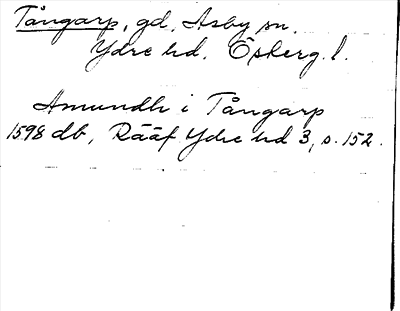 Tångarp, gd, Asby sn.
Ydre hd. Österg. l.
Amundh i Tångarp
1598 db, Rääf Ydre hd 3, s. 152.